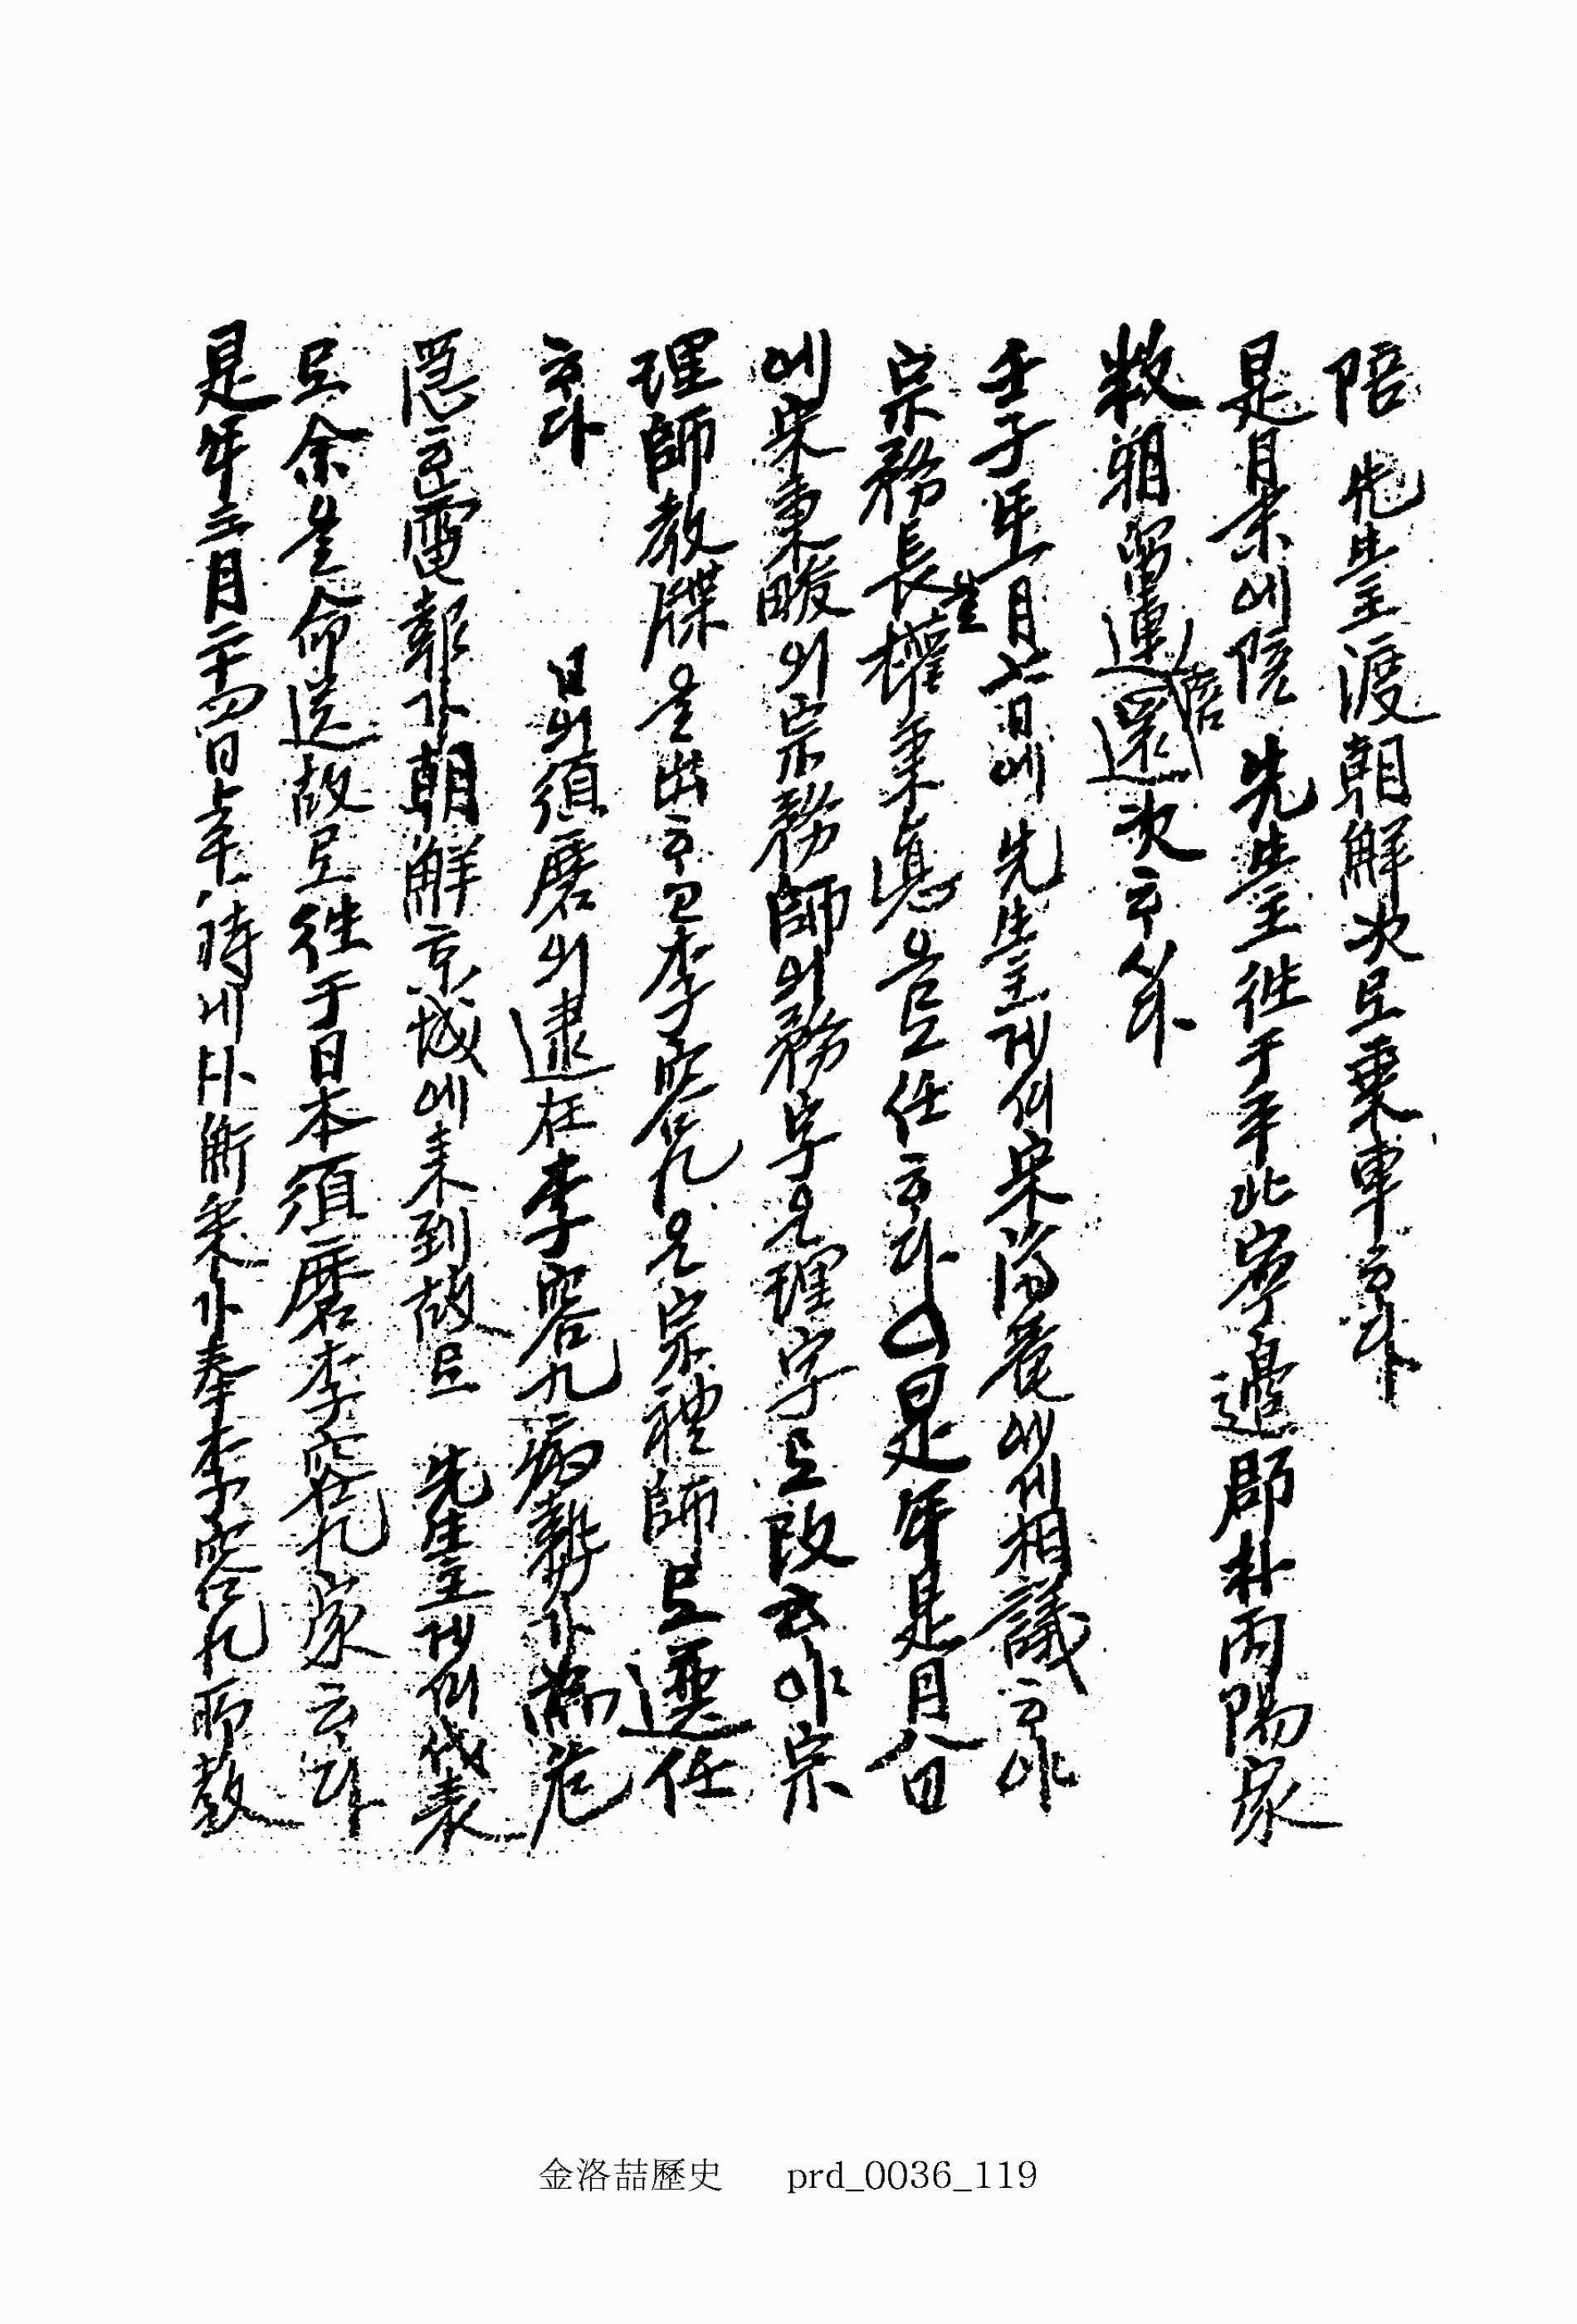 陪 先生主渡朝鮮次로乘車하다
是月末에陪 先生主往于平北寧邊郡朴丙陽家
數朔留連還次하엿다
壬子年一月六日에 先生主께서宋濟菴에게相議하야
宗務長을權秉悳으로任하다○是年是月八日
에宋秉畯이宗務師의務字을理字로改하야宗
理師敎牒을出하고李容九을宗禮師로選任
하다 日에須磨에逮在李容九病勢가危
電報가朝鮮京城에來到故로 先生主께서代表
로余을命送故로往于日本須磨李容九家하다
是年三月二十四日上午 時에 奉李容九而敎
金洛喆歷史 prd_0036_119